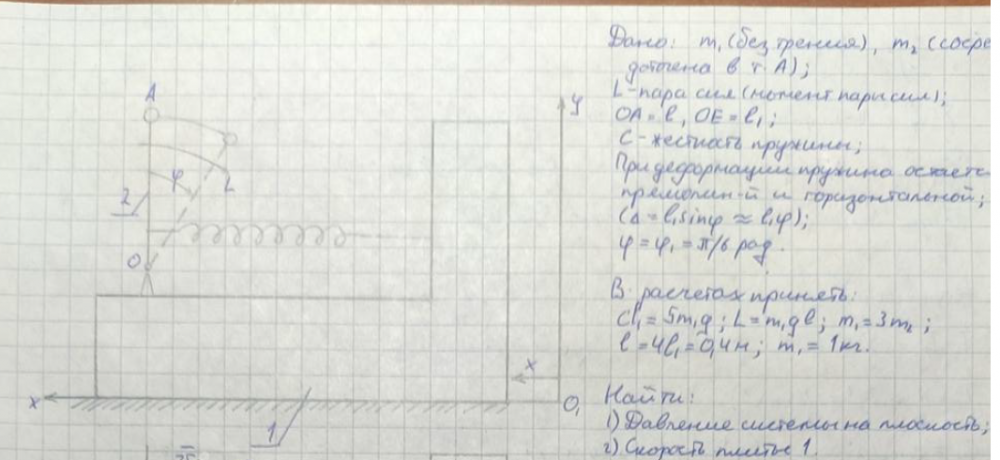 Дано: m₁ (без трения), m₂ (сосре
доточена в т. А);
L - пара сил (момент пары сил);
OA = l, OE = l₁;
C - жесткость пружины;
При деформации пружина остаетс
прямолин-й и горизонтальной;
(Δ = l₁ sinφ ≈ l₁φ);
φ = φ₁ = π/6 рад.
В расчетах принять:
cl₁ = 5m₁g; L = m₁gl; m₁ = 3m₂;
l = 4l₁ = 0,4м; m₁ = 1кг.
Найти:
1) Давление системы на плоскость;
2) Скорость плиты 1
A
y
φ
L
2
O
x
x
O₁
1